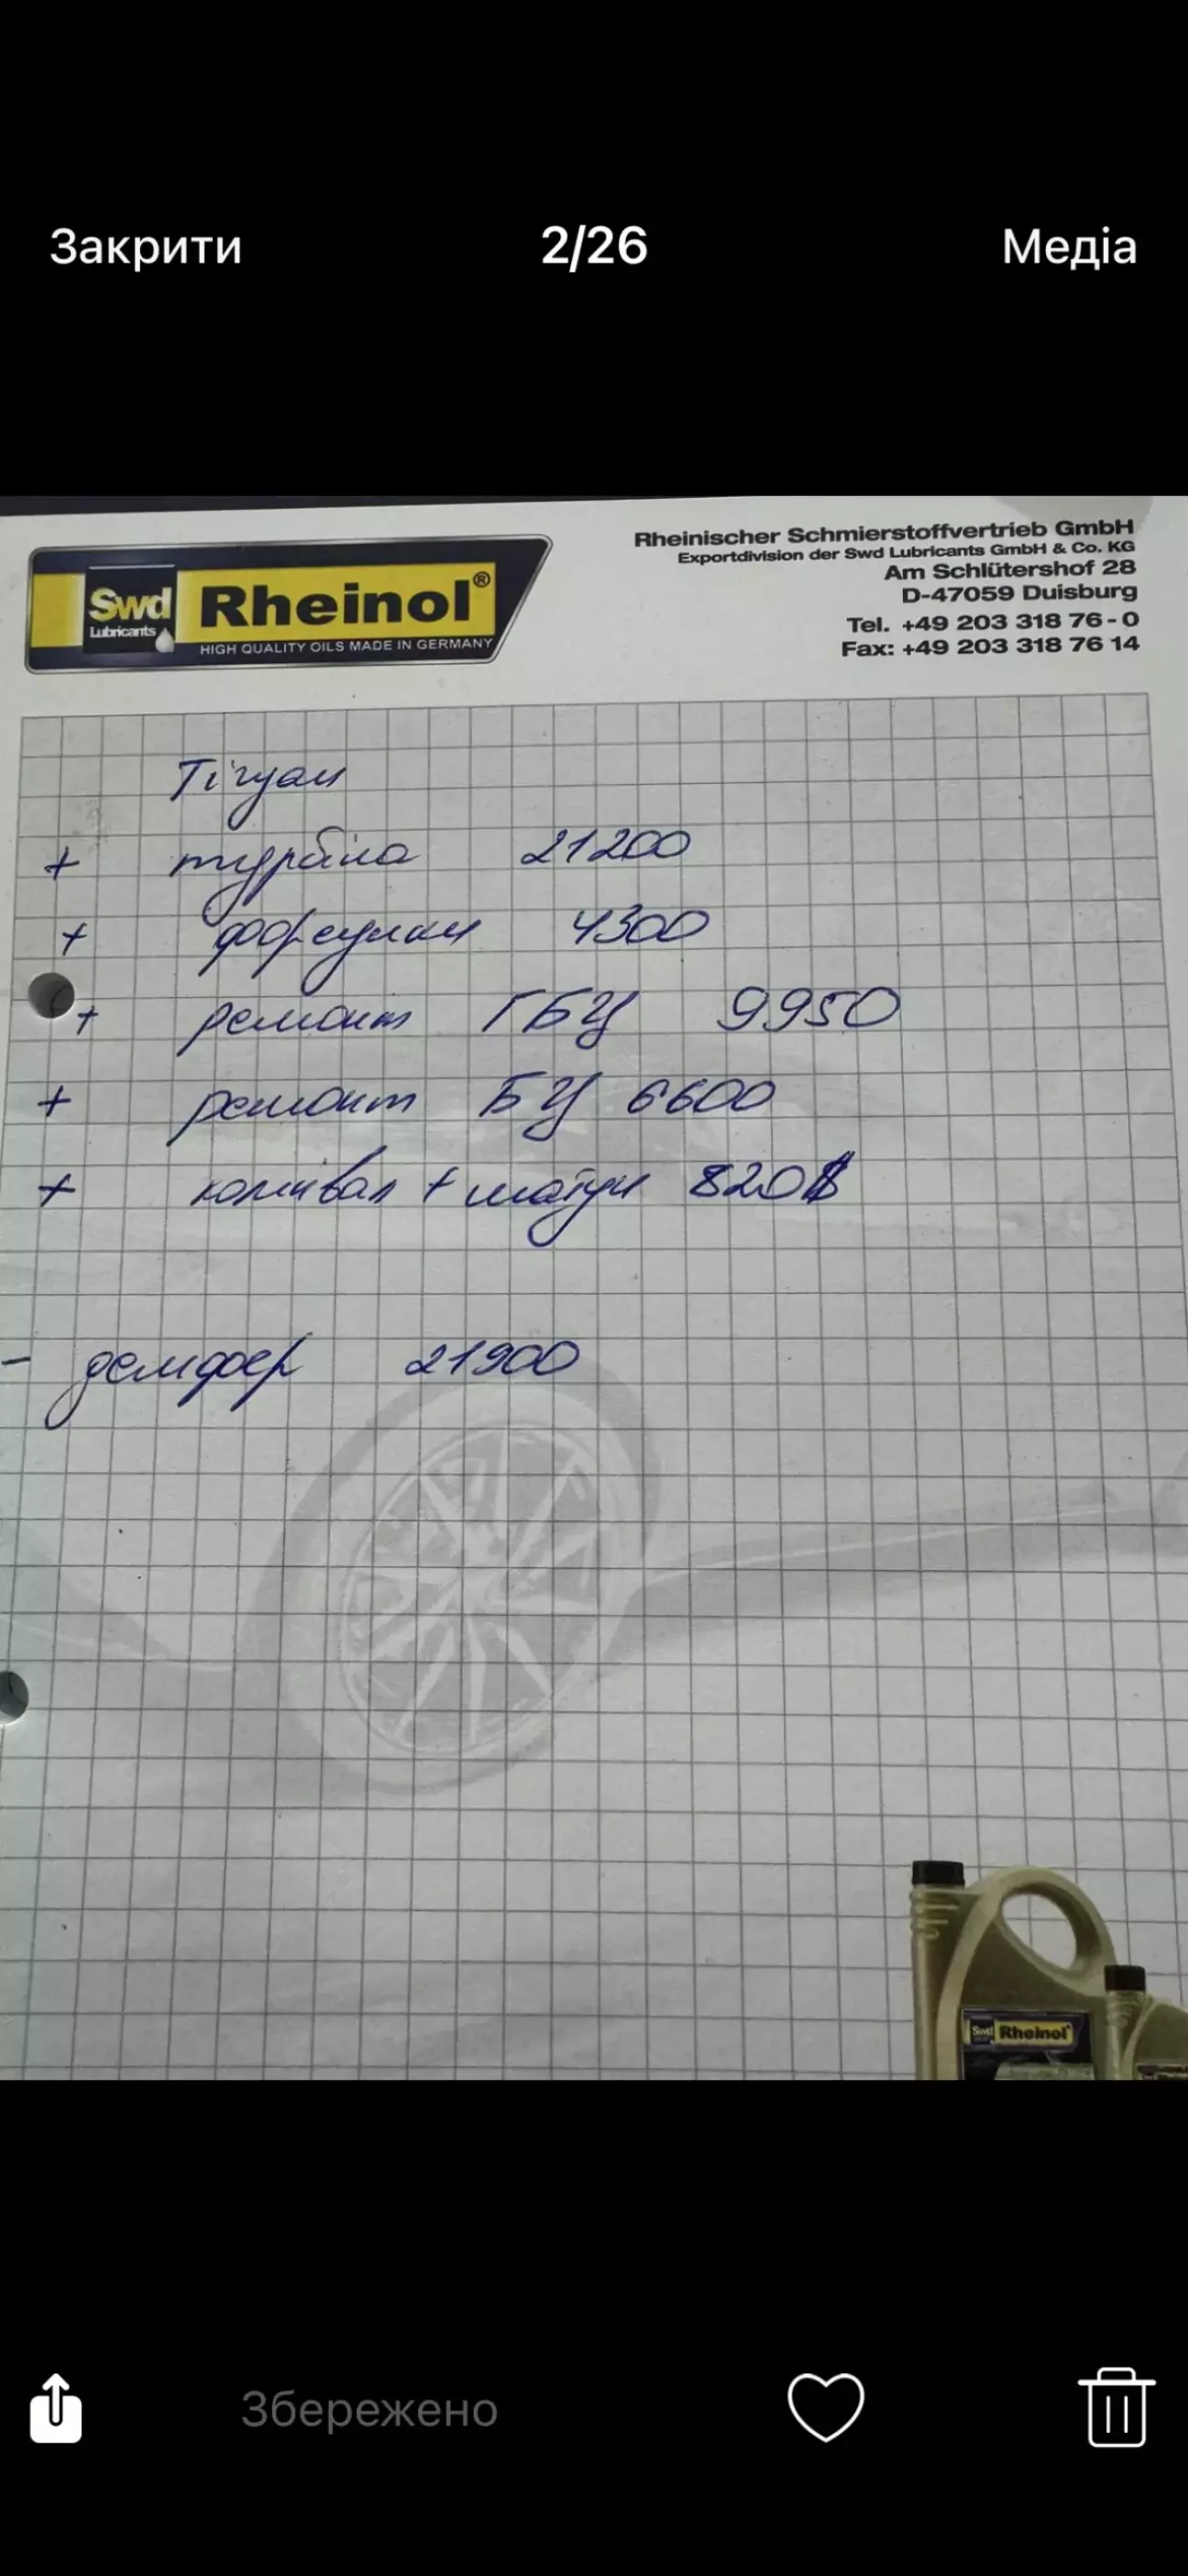 Закрити 2/26 Медіа
Rheinischer Schmierstoffvertrieb GmbH
Exportdivision der Swd Lubricants GmbH & Co. KG
Am Schlütershof 28
D-47059 Duisburg
Tel. +49 203 318 76-0
Fax: +49 203 318 76 14
Swd
Lubricants
Rheinol®
HIGH QUALITY OILS MADE IN GERMANY
Тігуан
+ турбіна 21200
+ форсунки 4300
+ ремонт ГБЦ 9950
+ ремонт БЦ 6600
+ колінвал + шатун 820$
- демфер 21900
Swd Rheinol
Збережено